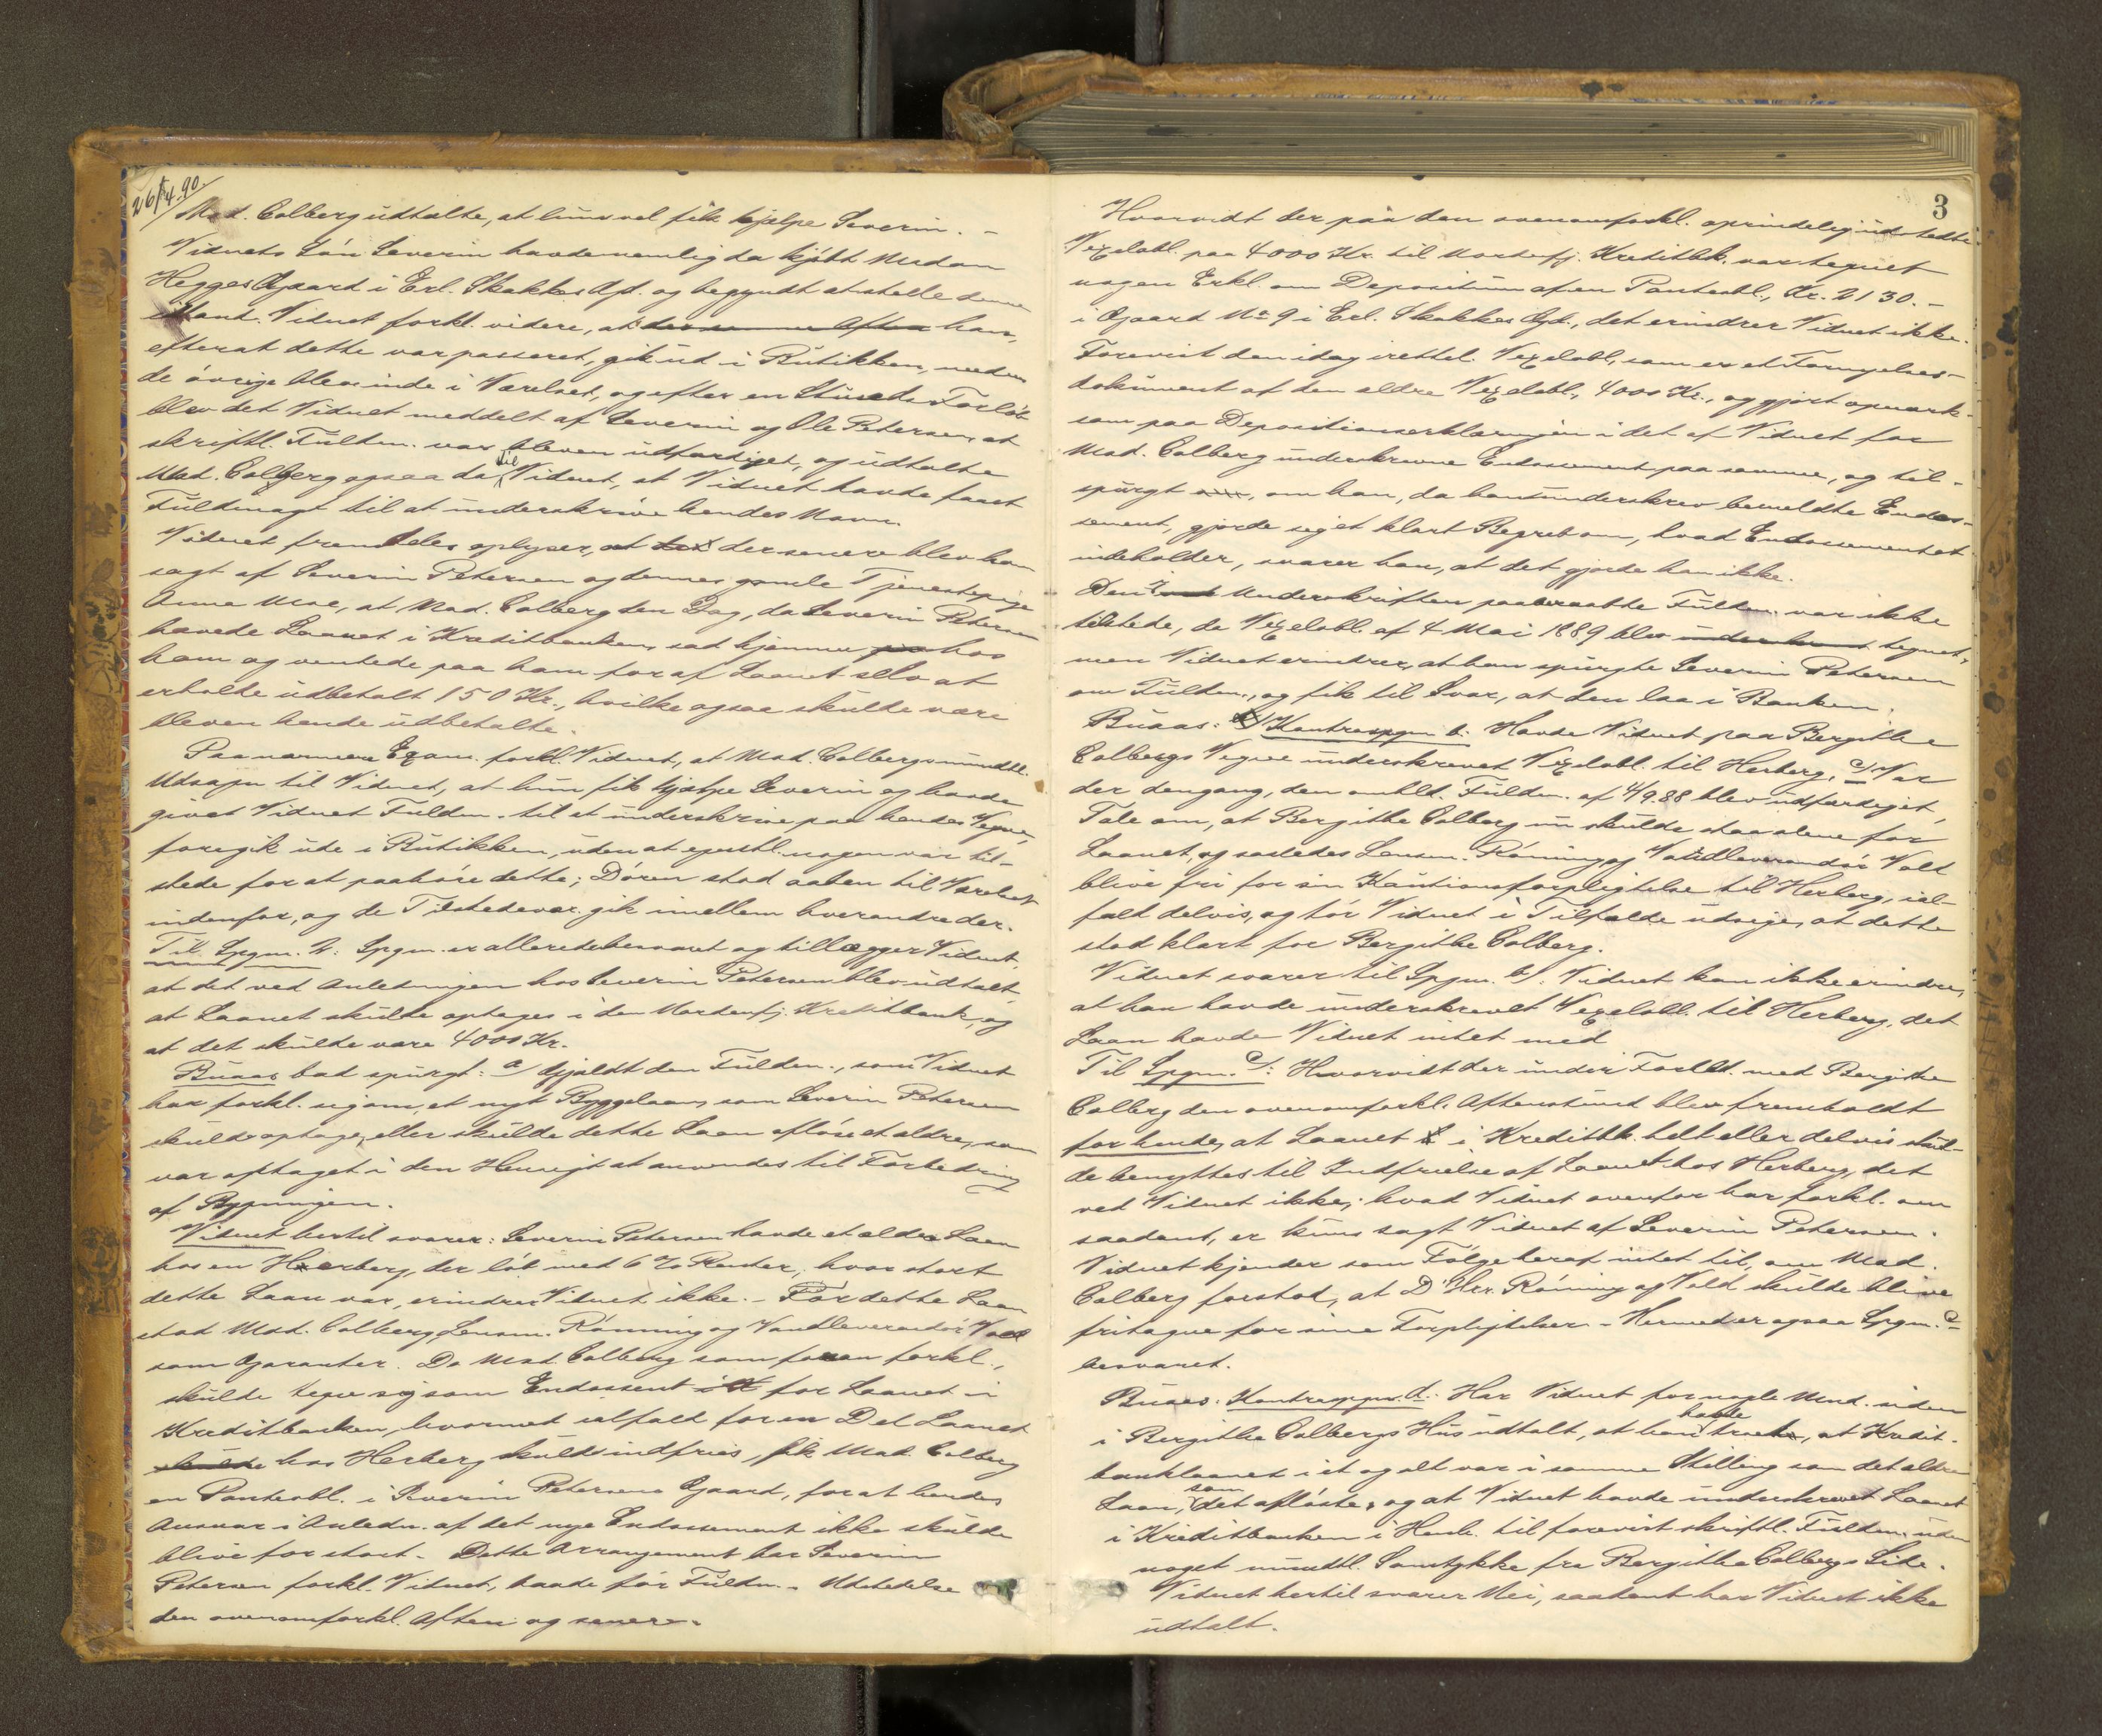 26/4.90.
Mad. Colberg udtalte, at hun vel fik hjælpe Severin. –
Vidnets Søn Severin havde nemlig da kjøbt Madam
Hegges Gaard i Erl. Skakkes Gd. og begyndt at stelle denne
istand. Vidnet forkl. videre, at den samme Aften han,
efterat dette var passeret, gik ud i Butikken, medens
de øvrige blev inde i Værelset, og efter en Stunds Forløb
blev det Vidnet meddelt af Severin og Ole Petersen, at
skriftl. Fuldm. var bleven udfærdiget, og udtalte
Mad. Colberg ogsaa da til Vidnet, at Vidnet havde faaet
Fuldmagt til at underskrive hendes Navn.
Vidnet fremdeles oplyser, at det der senere blev ham
sagt af Severin Petersen og dennes gamle Tjenestepige
Anne Moe, at Mad. Colberg den Dag, da Severin Petersen
hævede Laanet i Kreditbanken, sad hjemme paa hos
ham og ventede paa ham for af Laanet selv at
erholde udbetalt 150 Kr., hvilke ogsaa skulde være
bleven hende udbetalte.
Paa nærmere Exam. forkl. Vidnet, at Mad. Colbergs mundtl.
Udsagn til Vidnet, at hun fik hjælpe Severin og havde
givet Vidnet Fuldm. til at underskrive paa hendes Vegne,
foregik ude i Butikken, uden at egentl. nogen var til-
stede for at paahøre dette; Døren stod aaben til Værelset
indenfor, og de Tilstedevær. gik imellem hverandre der.
Til Spgm. 4: Spgm. er allerede besvaret og tillægger Vidnet,
at det ved Anledningen hos Severin Petersen blev udtalt,
at Laanet skulde optages i den Nordenfj. Kreditbank, og
at det skulde være 4000 Kr.
Buaas bad spurgt: a/ Gjaldt den Fuldm., som Vidnet
har forkl. sig om, et nyt Byggelaan, som Severin Petersen
skulde optage, eller skulde dette Laan afløse et ældre, som
var optaget i den Hensigt at anvendes til Forbedring
af Bygningen.
Vidnet hertil svarer: Severin Petersen havde et ældre Laan
hos en Herberg, der løb med 6 % Renter, hvor stort
dette Laan var, erindrer Vidnet ikke. – For dette Laan
stod Mad. Colberg, Lensm. Rønning og Vandleverandør Vold
som Garanter. Da Mad. Colberg som foran forkl.,
skulde tegne sig som Endossent id for Laanet i
Kreditbanken, hvormed ialfald for en Del Laanet
skulde hos Herberg skulde indfries, fik Mad. Colberg
en Panteobl. i Severin Petersens Gaard, for at hendes
Ansvar i Anledn. af det nye Endossement ikke skulde
blive for stort. – Dette Arrangement har Severin
Petersen forkl. Vidnet, baade før Fuldm.s Udstedelse
den ovenomforkl. Aften og senere.
3
Hvorvidt der paa den ovenomforkl. oprindelig udstedte
Vexelobl. paa 4000 Kr. til Nordenfj. Kreditbk. var tegnet
nogen Erkl. om Depositum af en Panteobl., Kr. 2130. –
i Gaard No 9 i Erl. Skakkes Gd., det erindrer Vidnet ikke.
Forevist den idag irettel. Vexelobl, som er et Fornyelses-
dokument af den ældre Vexelobl., 4000 Kr., og gjort opmærk-
som paa Depositionserklæringen i det af Vidnet for
Mad. Colberg underskrevne Endossement paa samme, og til-
spurgt om, om han, da han underskrev bemeldte Endos-
sement, gjorde sig et klart Begreb om, hvad Endossementet
indeholder, svarer han, at det gjorde han ikke.
Den i Underskriften paaberaabte Fuldm. var ikke
tilstede, da Vexelobl. af 4 Mai 1889 blev underskrevet tegnet,
men Vidnet erindrer, at han spurgte Severin Petersen
om Fuldm., og fik til Svar, at den laa i Banken.
Buaas: Kontraspgm b. Havde Vidnet paa Bergithe
Colbergs Vegne underskrevet Vexelobl. til Herberg, c/ Var
der dengang, den omhdl. Fuldm. af 4/9.88 blev udfærdiget,
Tale om, at Bergithe Colberg nu skulde staa alene for
Laanet, og saaledes Lensm. Rønning og Vandleverandør Vold
blive fri for sin Kautionsforpligtelse til Herberg, ial-
fald delvis, og tør Vidnet i Tilfælde udsige, at dette
stod klart for Bergithe Colberg.
Vidnet svarer til Spgm. b/: Vidnet kan ikke erindre,
at han havde underskrevet Vexelobl. til Herberg, det
Laan havde Vidnet intet med
Til Spgm. c/: Hvorvidt der under Forhdl. med Bergithe
Colberg den ovenomforkl. Aftenstund blev fremholdt
for hende, at Laanet i Kreditbk. helt eller delvis skul-
de benyttes til Indfrielse af Laanet hos Herberg, det
ved Vidnet ikke; hvad Vidnet ovenfor har forkl. om
saadant, er kun sagt Vidnet af Severin Petersen.
Vidnet kjender som Følge heraf intet til, om Mad.
Colberg forstod, at D'Hrr. Rønning og Vold skulde blive
fritagne for sine Forpligtelser. – Hermed er ogsaa Spgm. c
besvaret.
Buaas: Kontraspgm. d. Har Vidnet for nogle Mnd. siden
i Bergithe Colbergs Hus udtalt, at han havde troet, at Kredit-
banklaanet i et og alt var i samme Stilling som det ældre
Laan, som det afløste, og at Vidnet havde underskrevet Laanet
i Kreditbanken i Henh. til forevist skriftl. Fuldm. uden
noget mundtl. Samtykke fra Bergithe Colbergs Side.
Vidnet hertil svarer Nei, saadant har Vidnet ikke
udtalt.